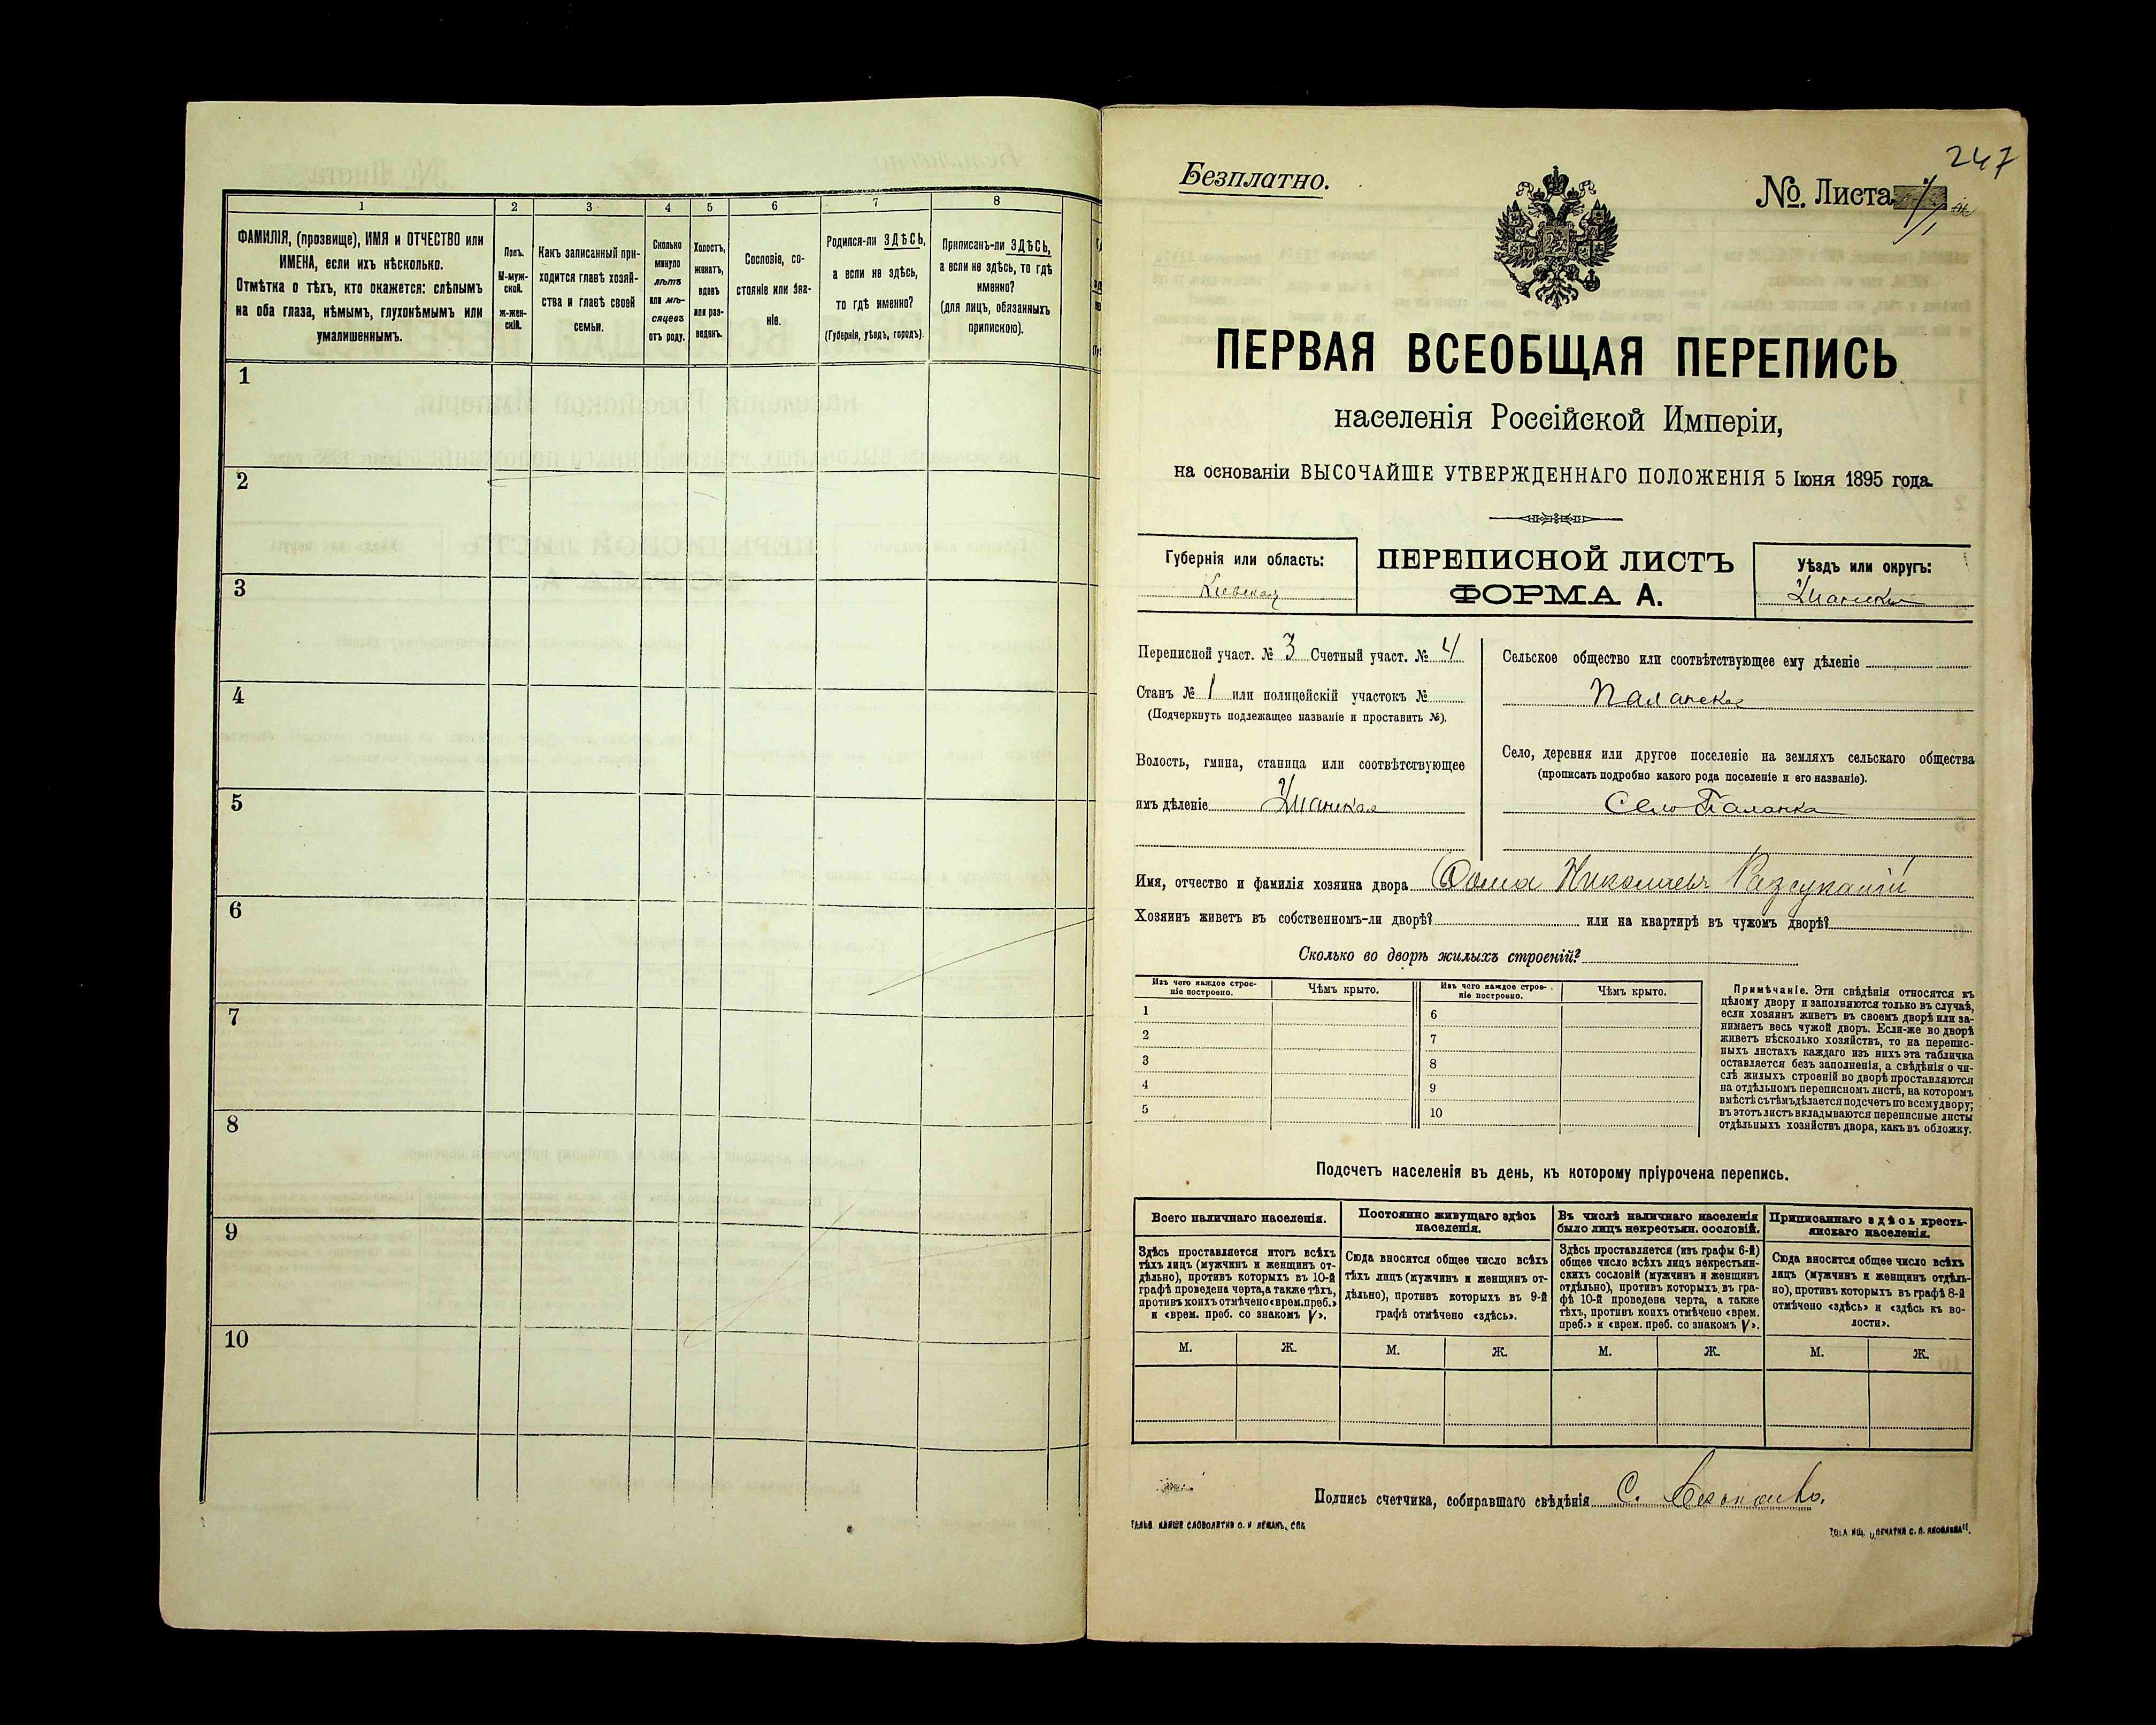 1
2
3
4
5
6
7
8
ФАМИЛІЯ, (прозвище), ИМЯ и ОТЧЕСТВО или
ИМЕНА, если ихъ нѣсколько.
Отмѣтка о тѣхъ, кто окажется: слѣпымъ
на оба глаза, нѣмымъ, глухонѣмымъ или
умалишеннымъ.
Полъ.
М-муж-
ской.
Ж-жен-
скій.
Какъ записанный при-
ходится главѣ хозяй-
ства и главѣ своей
семьи.
Сколько
минуло
лѣтъ
или мѣ-
сяцевъ
отъ роду.
Холостъ,
женатъ,
вдовъ
или раз-
веденъ.
Сословіе, со-
стояніе или зва-
ніе.
Родился-ли ЗДѢСЬ,
а если не здѣсь,
то гдѣ именно?
(Губернія, уѣздъ, городъ).
Приписанъ-ли ЗДѢСЬ,
а если не здѣсь, то гдѣ
именно?
(для лицъ, обязанныхъ
припискою).
1
2
3
4
5
6
7
8
9
10
247
Безплатно.
№. Листа
ПЕРВАЯ ВСЕОБЩАЯ ПЕРЕПИСЬ
населенія Россійской Имперіи,
на основаніи ВЫСОЧАЙШЕ УТВЕРЖДЕННАГО ПОЛОЖЕНІЯ 5 Іюня 1895 года.
Губернія или область:
Кіевская
ПЕРЕПИСНОЙ ЛИСТЪ
ФОРМА А.
Уѣздъ или округъ:
Уманскій
Переписной участ. № 3 Счетный участ. № 4
Станъ № 1 или полицейскій участокъ №
(Подчеркнуть подлежащее названіе и проставить №).
Волость, гмина, станица или соотвѣтствующее
имъ дѣленіе Уманская
Сельское общество или соотвѣтствующее ему дѣленіе
Паланское
Село, деревня или другое поселеніе на земляхъ сельскаго общества
(прописать подробно какого рода поселеніе и его названіе).
Село Паланка
Имя, отчество и фамилія хозяина двора Фома Николаевъ
Хозяинъ живетъ въ собственномъ-ли дворѣ? или на квартирѣ въ чужомъ дворѣ?
Сколько во дворѣ жилыхъ строеній?
Изъ чего каждое строе-
ніе построено.
Чѣмъ крыто.
Изъ чего каждое строе-
ніе построено.
Чѣмъ крыто.
1
2
3
4
5
6
7
8
9
10
Примѣчаніе. Эти свѣдѣнія относятся къ
цѣлому двору и заполняются только въ случаѣ,
если хозяинъ живетъ въ своемъ дворѣ или за-
нимаетъ весь чужой дворъ. Если-же во дворѣ
живетъ нѣсколько хозяйствъ, то на перепис-
ныхъ листахъ каждаго изъ нихъ эта табличка
оставляется безъ заполненія, а свѣдѣнія о чи-
слѣ жилыхъ строеній во дворѣ проставляются
на отдѣльномъ переписномъ листѣ, на которомъ
вмѣстѣ съ тѣмъ дѣлается подсчетъ по всему двору;
въ этотъ листъ вкладываются переписные листы
отдѣльныхъ хозяйствъ двора, какъ въ обложку.
Подсчетъ населенія въ день, къ которому пріурочена перепись.
Всего наличнаго населенія.
Здѣсь проставляется итогъ всѣхъ
тѣхъ лицъ (мужчинъ и женщинъ от-
дѣльно), противъ которыхъ въ 10-й
графѣ проведена черта, а также тѣхъ,
противъ коихъ отмѣчено «врем. преб.»
и «врем. преб. со знакомъ V».
Постоянно живущаго здѣсь
населенія.
Сюда вносится общее число всѣхъ
тѣхъ лицъ (мужчинъ и женщинъ от-
дѣльно), противъ которыхъ въ 9-й
графѣ отмѣчено «здѣсь».
Въ числѣ наличнаго населенія
было лицъ некрестьян. сословій.
Здѣсь проставляется (изъ графы 6-й)
общее число всѣхъ лицъ некрестьян-
скихъ сословій (мужчинъ и женщинъ
отдѣльно), противъ которыхъ въ гра-
фѣ 10-й проведена черта, а также
тѣхъ, противъ коихъ отмѣчено «врем.
преб.» и «врем. преб. со знакомъ V».
Приписаннаго здѣсь кресть-
янскаго населенія.
Сюда вносится общее число всѣхъ
лицъ (мужчинъ и женщинъ отдѣль-
но), противъ которыхъ въ графѣ 8-й
отмѣчено «здѣсь» и «здѣсь къ во-
лости».
М. Ж. М. Ж. М. Ж. М. Ж.
Подпись счетчика, собиравшаго свѣдѣнія С.